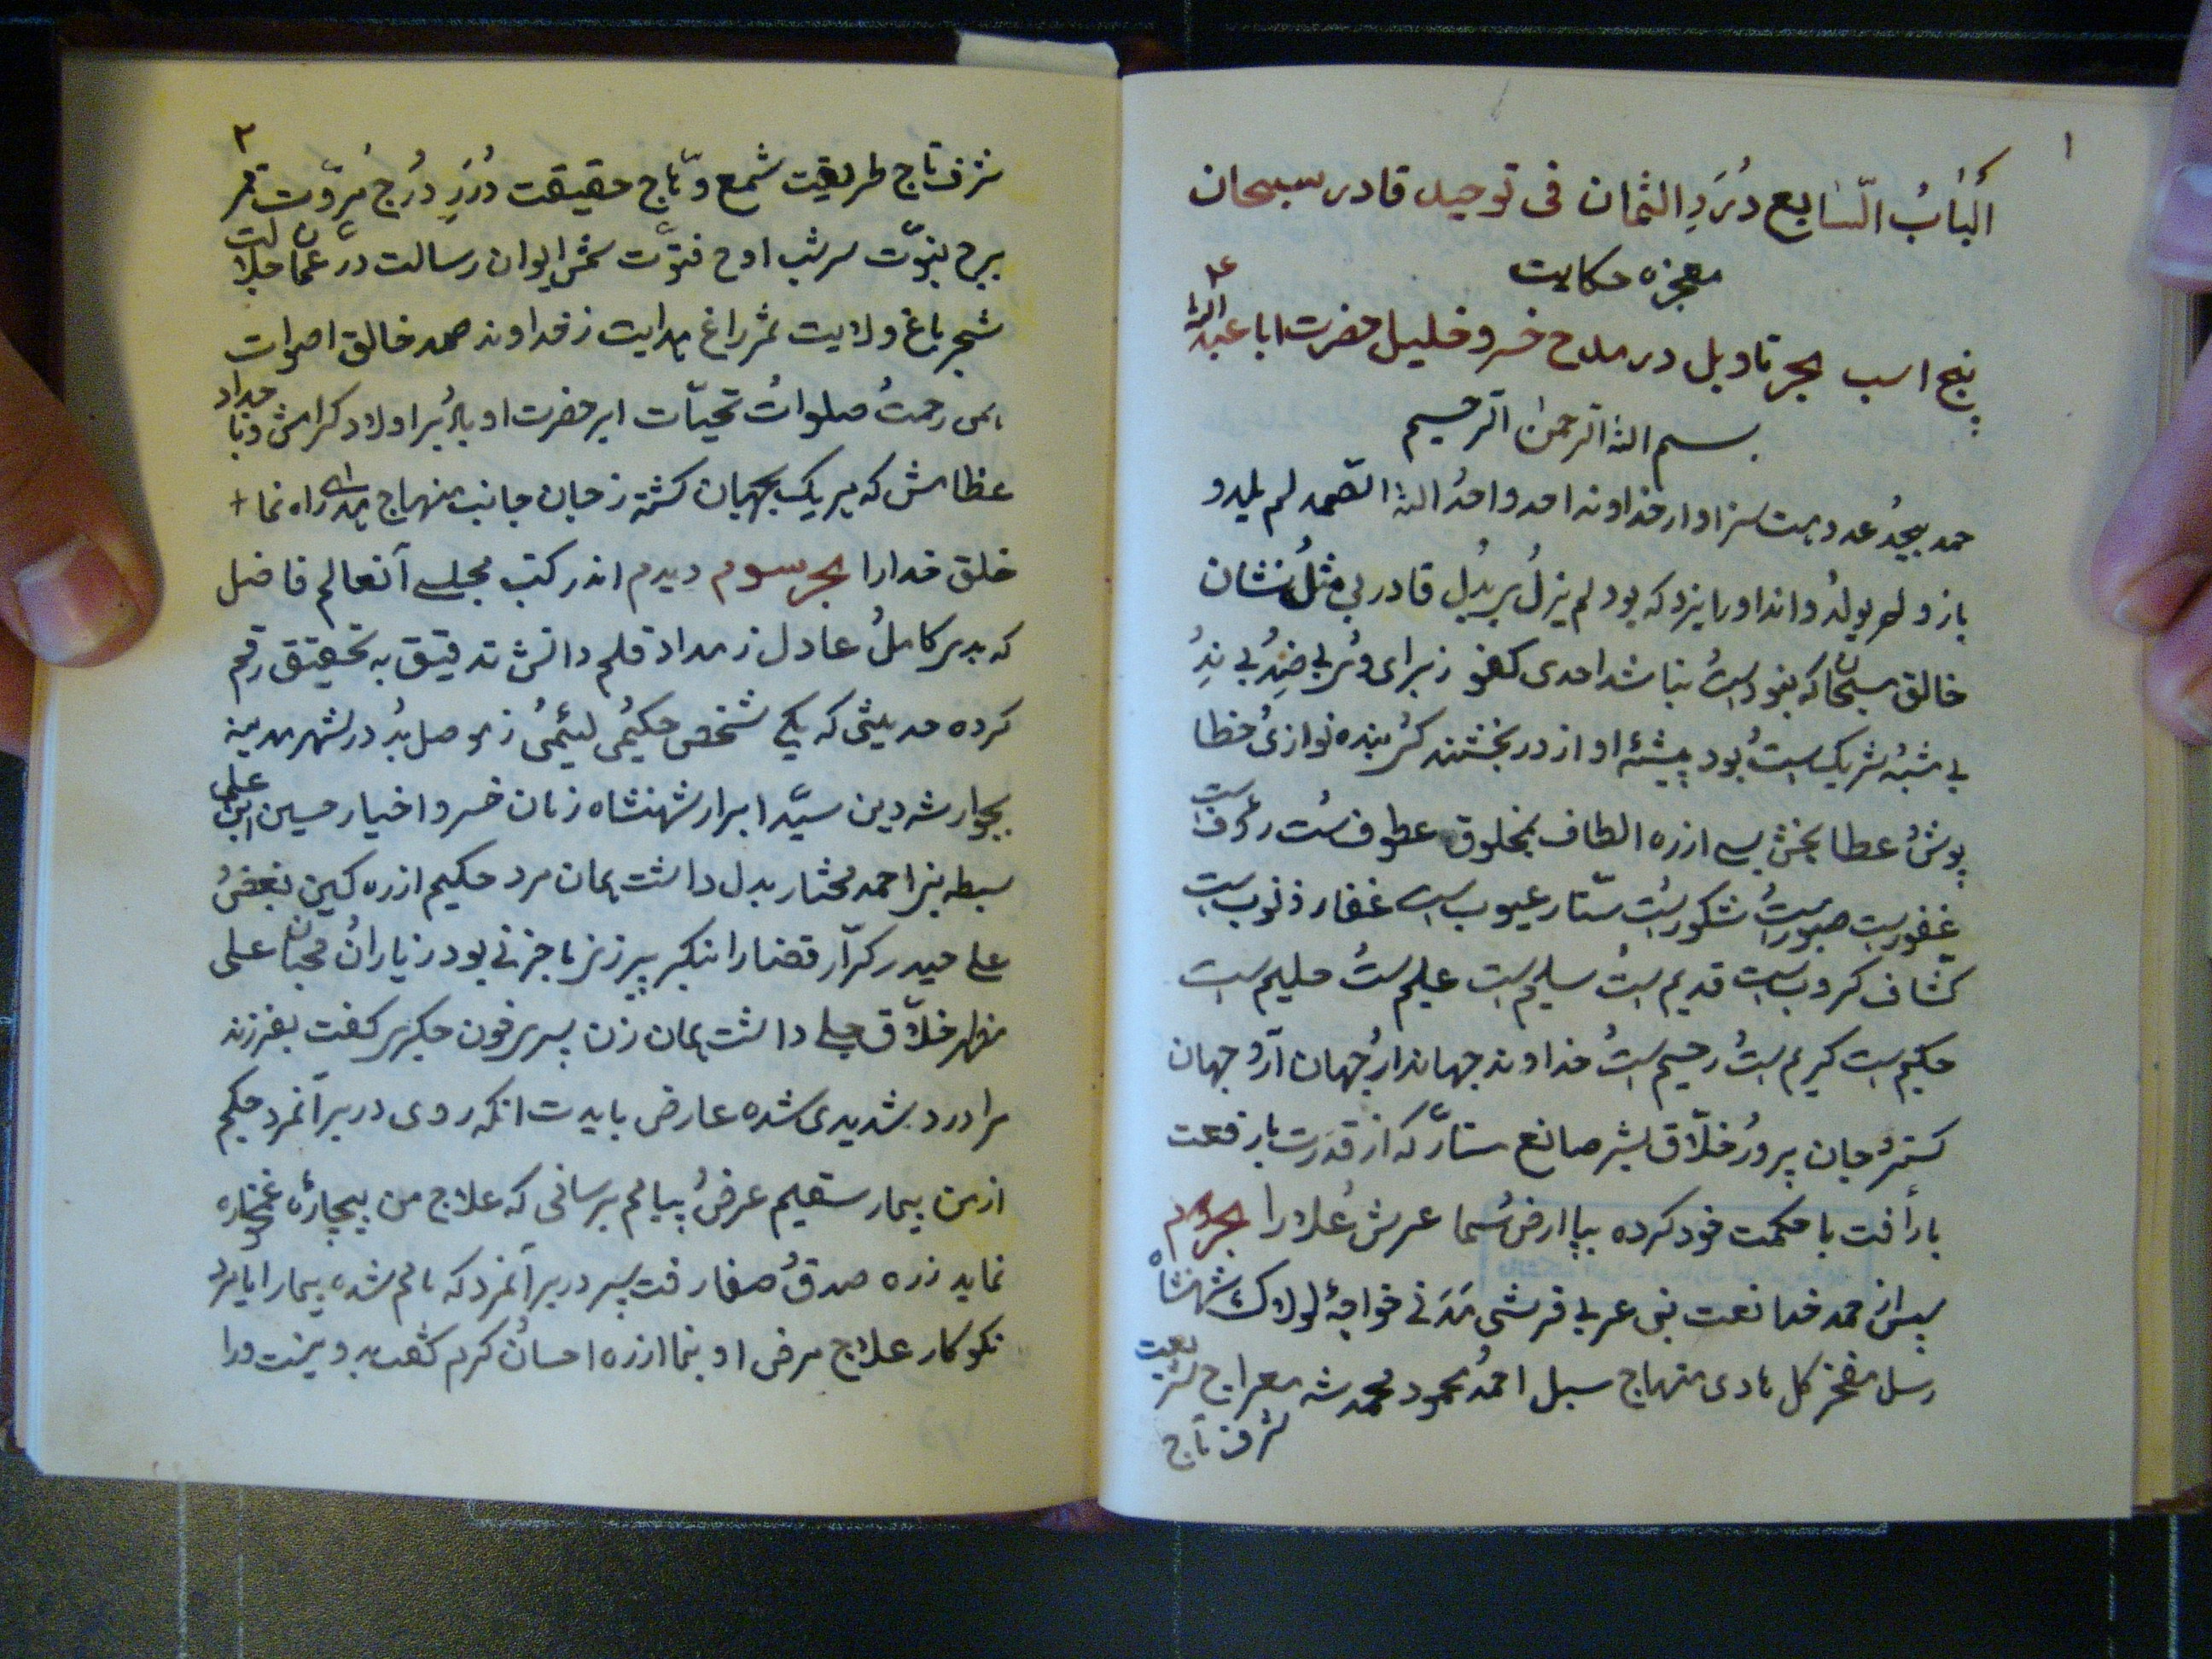 ۱
اَلْبٰابُ السّٰابع دُرَرِ الثمان فی توحید قادر سبحان
معجزه حکایت
پنج اسب بحر تاویل در مدح خسرو خلیل حضرت ابا عبدالله ع
بسم الله الرحمن الرحیم
حمد بیحدُ عدد هست سزاوار خداوند احد واحدُ الله الصّمد لم یلد و
باز ولم یولدُ داند اورا یزد که بود لم یزلُ بر بدُل قادر بی مثلُ نشان
خالق سبحان که نبودستُ نباشد احدی کفو زبرای وی بی ضِدُ بی نِدُ
بی شبهُ شریک استُ بود پیشهٔ او از در بخشندگیُ بنده نوازیُ خطا
پوشُ عطا بخش بسی از ره الطاف بمخلوق عطوف ستُ رؤف ست
غفورست صبورستُ شکورستُ ستّار عیوب ست غفار ذنوب ست
کشاف کروب ست قدیم ستُ سلیم ست علیم ستُ حلیم ست
حکیم ست کریم ستُ رحیم ستُ خداوند جهاندارُ جهان آرُ جهان
گسترُ جان پرورُ خلّاق بشر صانع ستارّ که از قدرت با رفعت
با رأفت با حکمت خود کرده بپا ارضُ سما عرش عُلا را بحر دوم
پس از حمد خدا نعت نبی عربی قرشی مدَنی خواجهٔ لولاک شهنشاه
رسل مفخر کل هادی منهاج سبل احمدُ محمود محمد شه معراج شریعت
شرف تاج
۲
شرف تاج طریقت شمع وهّاج حقیقت دُرَرِ دُرج مروّت قمر
برج نبوّت سر شب اوج فتوّت شمس ایوان رسالت درّ عمان جلالت
شجر باغ ولایت ثمر راغ هدایت ز خداوند صمد خالق اصوات
همی رحمتُ صلواتُ تحیّات ابر حضرت او باد بر اولاد کرامش و باجداد
عظامش که هر یک بجهان گشته ز جان جانب منهاج هدی راه نما +
خلق خدا را بحر سوم دیدم اندر کتب مجلسی آنعالم فاضل
که بد بر کاملُ عادل ز مداد قلم دانش تدقیق به تحقیق رقم
کرده حدیثی که یکی شخص حکیمُی لئیمُی ز موصل بُد در شهر مدینه
بجوار شه دین سیّد ابرار شهنشاه زمان خسرو اخیار حسین ابن علی
سبط نبی احمد مختار بدل داشت همان مرد حکیم از ره کین بغضُ
علی حیدر کرّار قضا را بنگر پیرزنی عاجزنی بود ز یارانُ محبان علی
مظهر خلّاق جلی داشت همان زن پسر فون جگری گفت بفرزند
مرا درد شدیدی شده عارض بایدت انکه روی در بر آنمرد حکیم
از من بیمار سقیم عرضُ پیامم برسانی که علاج من بیچارهٔ غمخواره
نماید ز ره صدقُ صفا رفت پسر در بر آنمرد که مامم شده بیمار ایا مرد
نکو کار علاج مرض او بنما از ره احسانُ کرم گفت